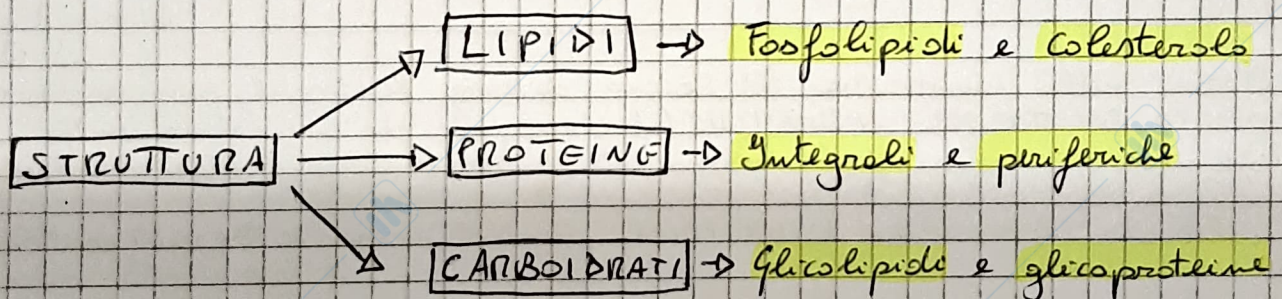 LIPIDI → Fosfolipidi e colesterolo
STRUTTURA → PROTEINE → Integrali e periferiche
CARBOIDRATI → Glicolipidi e glicoproteine